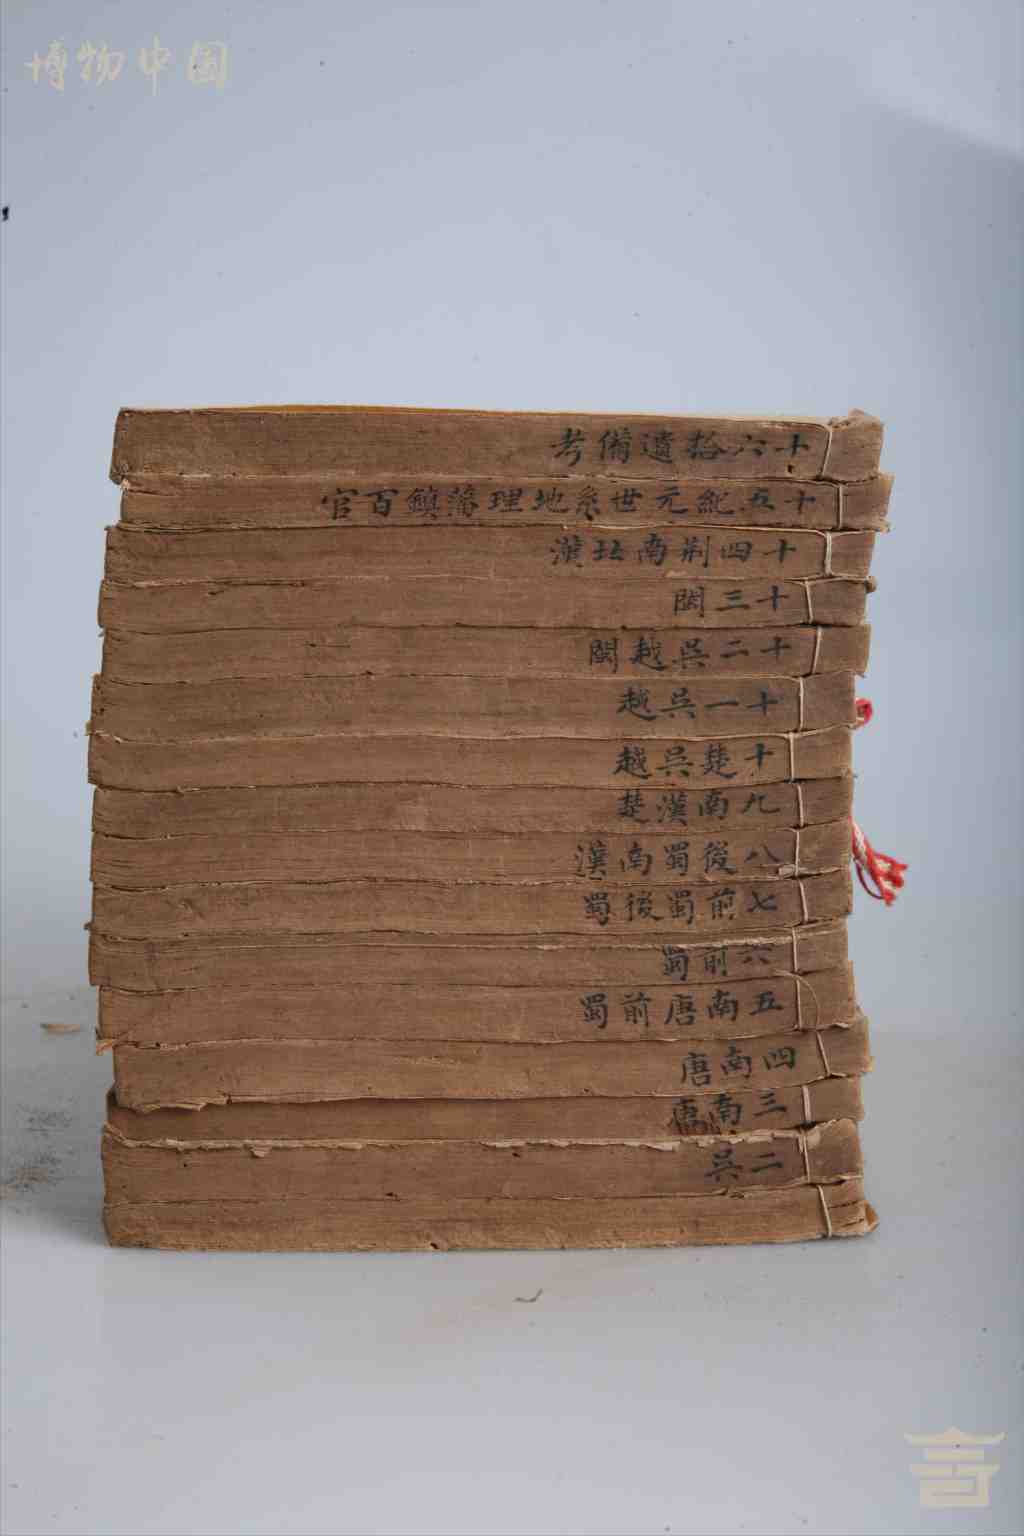 博物中国
十六拾遺備考
十五紀元世系地理藩鎮百官
十四荆南北漢
十三閩
十二吳越閩
十一吳越
十楚吳越
九南漢楚
八後蜀南漢
七前蜀後蜀
六前蜀
五南唐前蜀
四南唐
三南唐
二吳